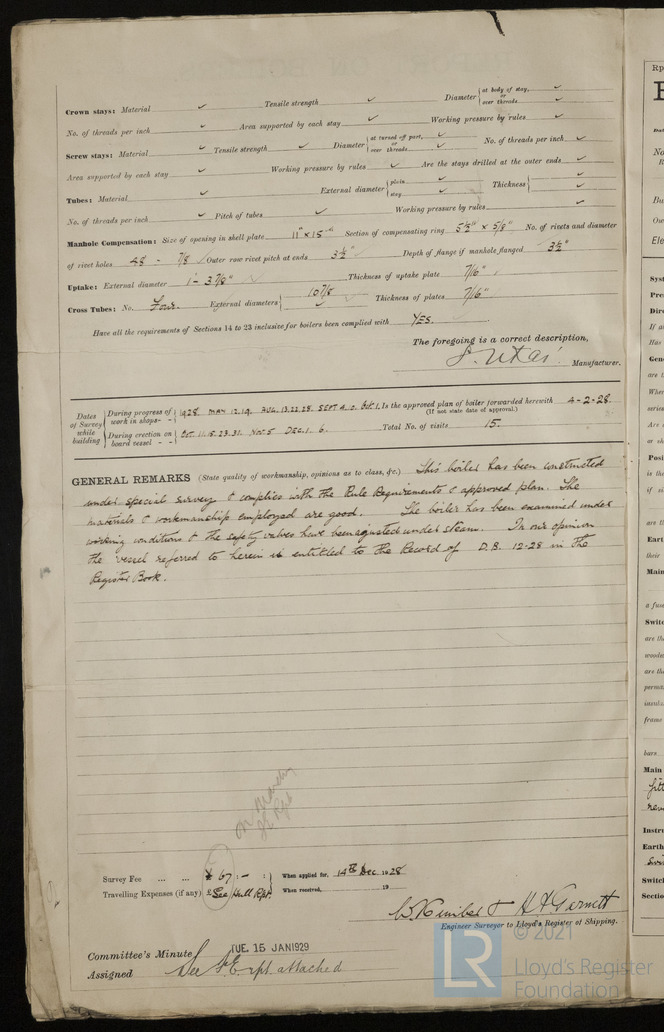 Crown stays: Material ✓ Tensile strength ✓ Diameter { at body of stay, ✓ or over threads ✓
No. of threads per inch ✓ Area supported by each stay ✓ Working pressure by rules ✓
Screw stays: Material ✓ Tensile strength ✓ Diameter { at turned off part, ✓ or over threads ✓ No. of threads per inch ✓
Area supported by each stay ✓ Working pressure by rules ✓ Are the stays drilled at the outer ends ✓
Tubes: Material ✓ External diameter { plain ✓ stay ✓ Thickness { ✓ ✓
No. of threads per inch ✓ Pitch of tubes ✓ Working pressure by rules ✓
Manhole Compensation: Size of opening in shell plate 11" x 15" Section of compensating ring 5½" x 5/8" No. of rivets and diameter
of rivet holes 48 - 7/8 Outer row rivet pitch at ends 3½" Depth of flange if manhole flanged 3½"
Uptake: External diameter 1'- 3 7/8" Thickness of uptake plate 7/16"
Cross Tubes: No. Four. External diameters { 10 7/8 ✓ Thickness of plates 7/16"
Have all the requirements of Sections 14 to 23 inclusive for boilers been complied with Yes.
The foregoing is a correct description,
Manufacturer.
Dates of Survey while building
During progress of work in shops - - 1928 MAY 12.19. AUG. 13.22.28. SEPT 4.10. Oct.1. Is the approved plan of boiler forwarded herewith 4-2-28.
(If not state date of approval.)
During erection on board vessel - - Oct. 11.15.23.31. Nov.5 DEC.1. 6. Total No. of visits 15.
GENERAL REMARKS (State quality of workmanship, opinions as to class, &c.) This boiler has been constructed
under special survey & complies with the Rule Requirements & approved plan. The
materials & workmanship employed are good. The boiler has been examined under
working conditions & the safety valves have been adjusted under steam. In our opinion
the vessel referred to herein is entitled to the Record of D.B. 12-28 in the
Register Book.
Survey Fee ... ... £ 67 : - : When applied for, 14th Dec 1928
Travelling Expenses (if any) £ See Hull Rpt. When received, 19
Engineer Surveyor to Lloyd's Register of Shipping.
Committee's Minute TUE. 15 JAN 1929
Assigned See rpt. attached
LR © 2021
Lloyd's Register
Foundation